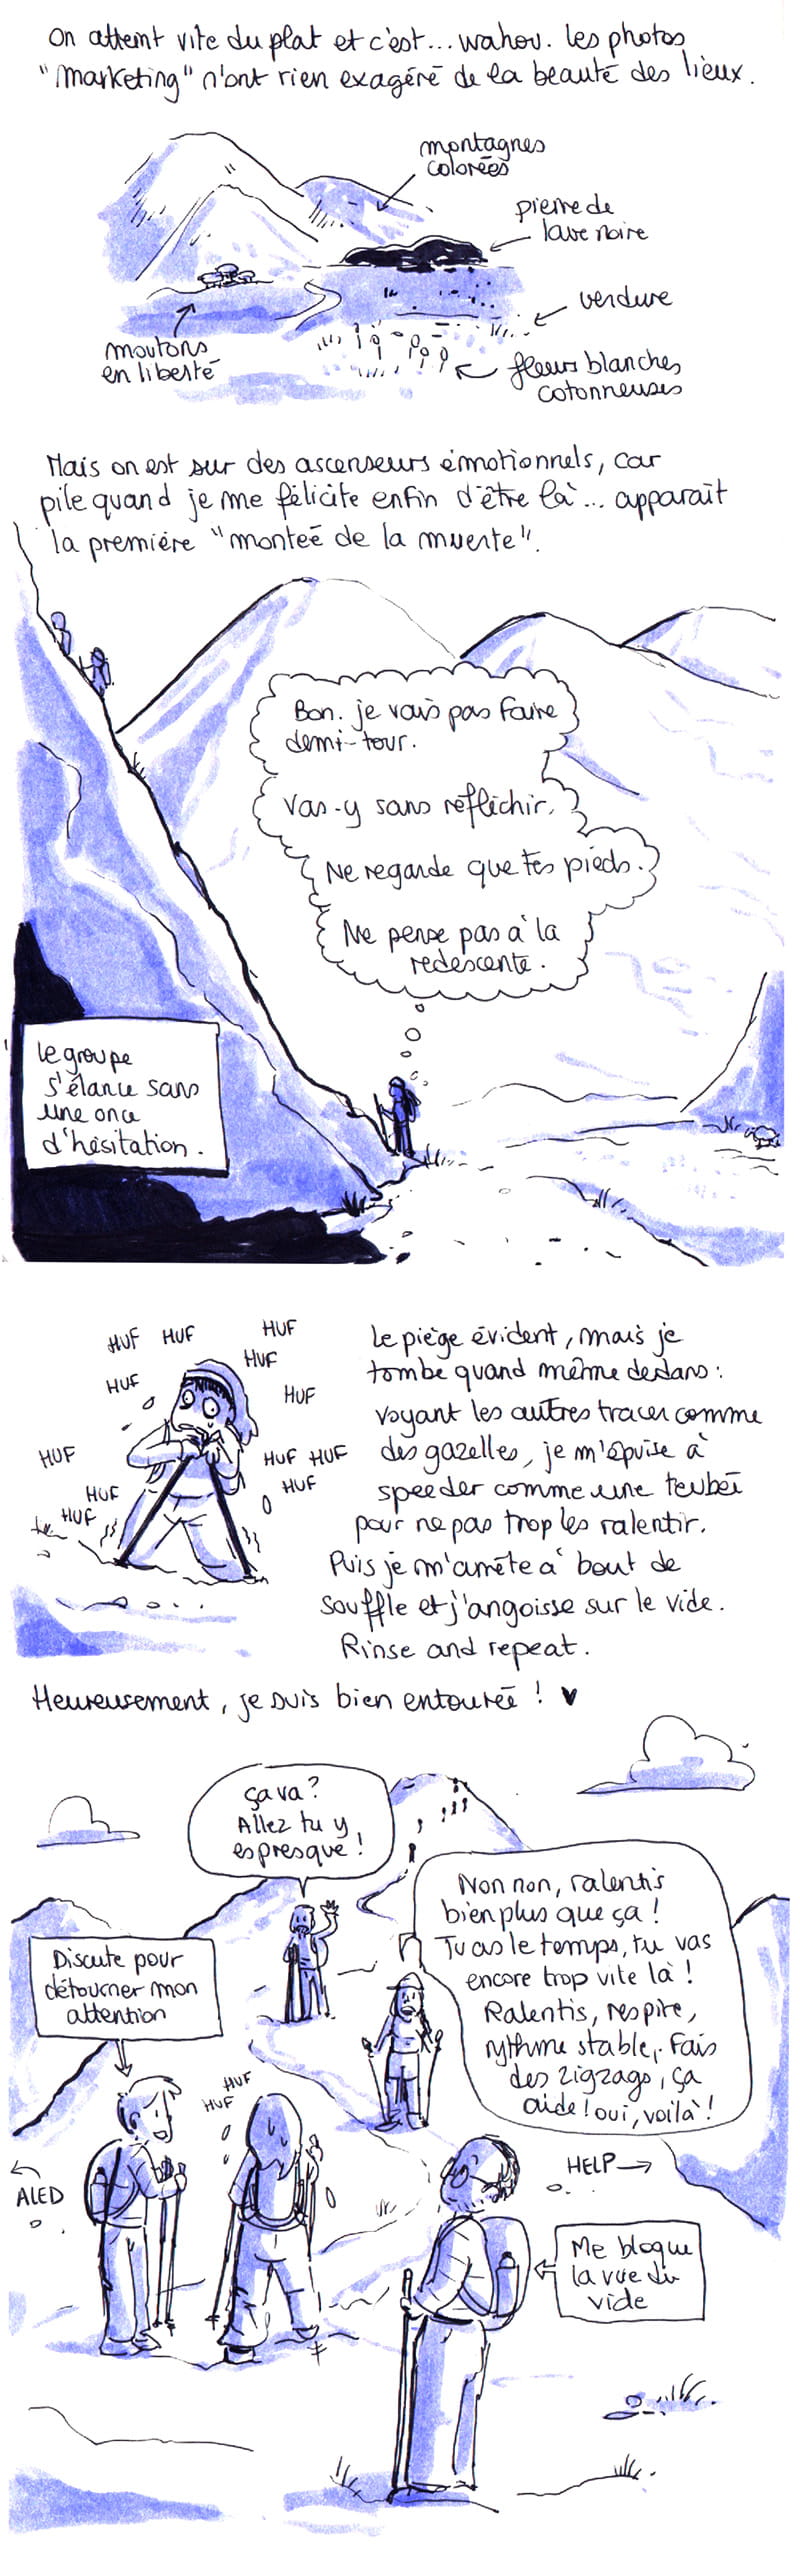 On atteint vite du plat et c'est... wahou. les photos
"marketing" n'ont rien exagéré de la beauté des lieux.
montagnes
colorées
pierre de
lave noire
verdure
moutons
en liberté
fleurs blanches
cotonneuses
Mais on est sur des ascenseurs émotionnels, car
pile quand je me félicite enfin d'être là... apparaît
la première "monteé de la muerte".
Bon. je vais pas faire
demi-tour.
Vas-y sans réfléchir.
Ne regarde que tes pieds.
Ne pense pas à la
redescente.
le groupe
s'élance sans
une once
d'hésitation.
HUF HUF HUF
HUF
HUF
HUF
HUF
HUF HUF
HUF
HUF
HUF
Le piège évident, mais je
tombe quand même dedans :
voyant les autres tracer comme
des gazelles, je m'épuise à
speeder comme une teubé
pour ne pas trop les ralentir.
Puis je m'arrête à bout de
souffle et j'angoisse sur le vide.
Rinse and repeat.
Heureusement, je suis bien entourée ! ♥
ça va ?
Allez tu y
es presque !
Non non, ralentis
bien plus que ça !
Tu as le temps, tu vas
encore trop vite là !
Ralentis, respire,
rythme stable, fais
des zigzags, ça
aide ! oui, voilà !
Discute pour
détourner mon
attention
HUF
HUF
← ALED
HELP →
Me bloque
la vue du
vide